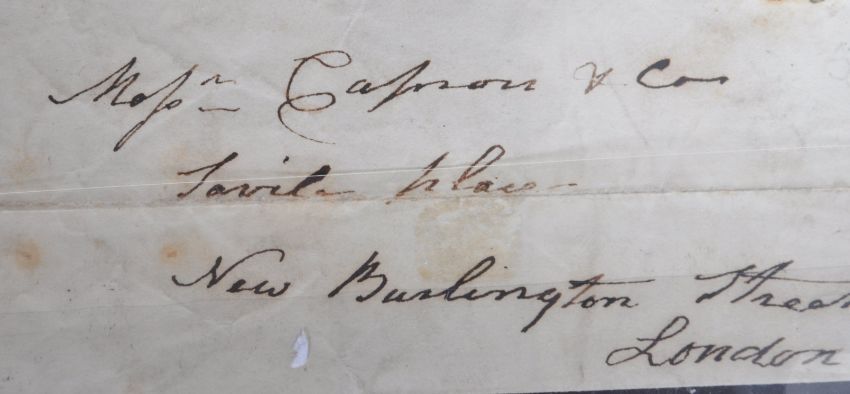 Messrs Capron & Co
Savile place
New Burlington Street
London